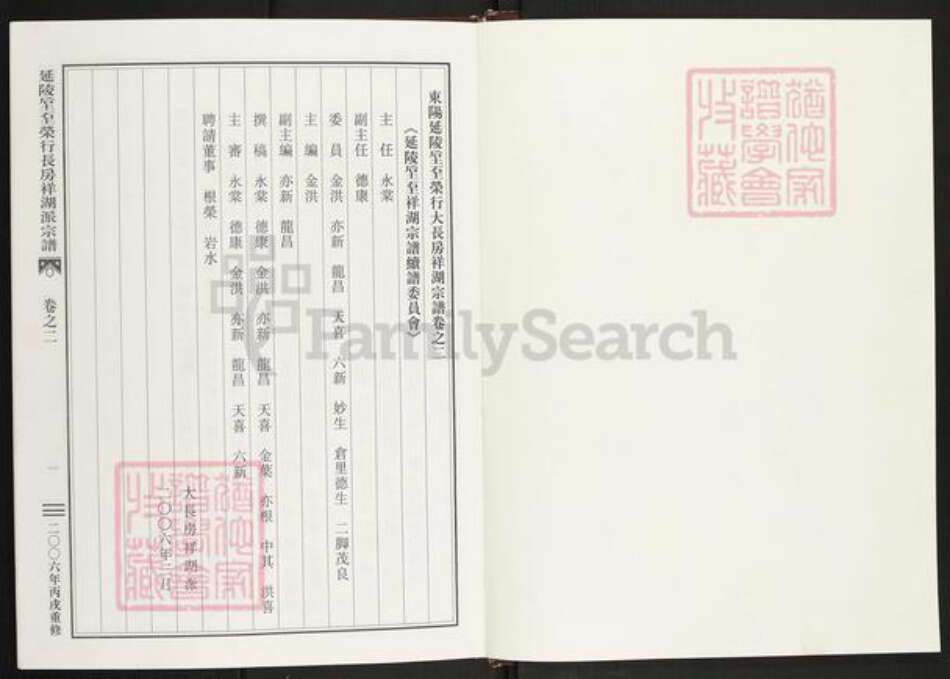 東陽延陵𫠡至榮行大長房祥湖宗譜卷之二
《延陵𫠡至祥湖宗譜續譜委員會》
主任 永棠
副主任 德康
委員 金洪 亦新 龍昌 天喜 六新 妙生 倉里德生 二脚茂良
主編 金洪
副主編 亦新 龍昌
撰稿 永棠 德康 金洪 亦新 龍昌 天喜 金葉 亦根 中其 洪喜
主審 永棠 德康 金洪 亦新 龍昌 天喜 六新
聘請董事 根榮 岩水
大長房祥湖派
二〇〇六年二月
延陵𫠡至榮行長房祥湖派宗譜
卷之二
一
二〇〇六年丙戌重修
猶他家譜學會收藏
猶他家譜學會收藏
FamilySearch